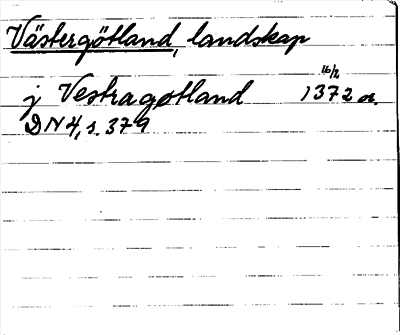 Västergötland, landskap
16/2
j Vestragotland 1372 or.
DN 4, s. 379